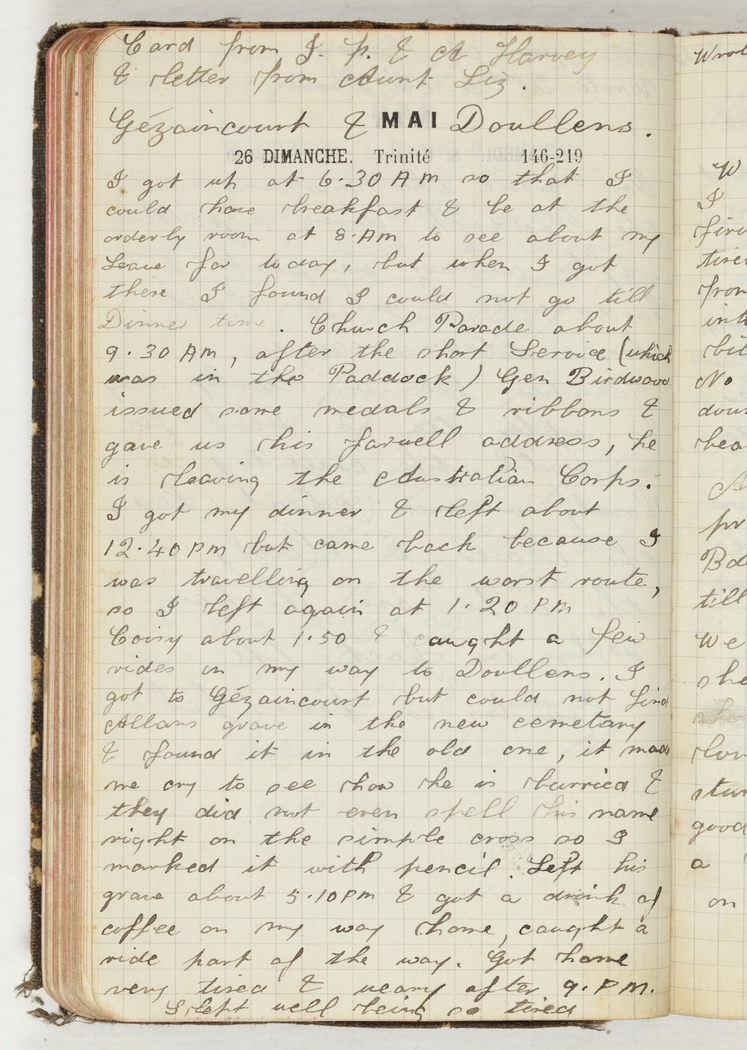 Card from J. P. & A Harvey
& letter from Aunt Liz.
Gézaincourt & MAI Doullens.
26 DIMANCHE. Trinité 146-219
I got up at 6.30 AM so that I
could have breakfast & be at the
orderly room at 8.AM to see about my
Leave for today, but when I got
there I found I could not go till
Dinner time. Church Parade about
9.30 AM, after the short Service (which
was in the Paddock) Gen Birdwood
issued some medals & ribbons &
gave us his farwell address, he
is leaving the Australian Corps.
I got my dinner & left about
12.40 PM but came back because I
was travelling on the worst route,
so I left again at 1.20 PM
Coisy about 1.50 & caught a few
rides on my way to Doullens. I
got to Gézaincourt but could not find
Allans grave in the new cemetary
& found it in the old one, it made
me cry to see how he is burried &
they did not even spell his name
right on the simple cross so I
marked it with pencil. Left his
grave about 5.10PM & got a drink of
coffee on my way home, caught a
ride part of the way. Got home
very tired & weary after 9. P.M.
Slept well being so tired
Wrot
W
I
fire
tire
from
int
bit
No
dow
hea
A
pr
Bd
till
We
she
slow
stun
good
a
on